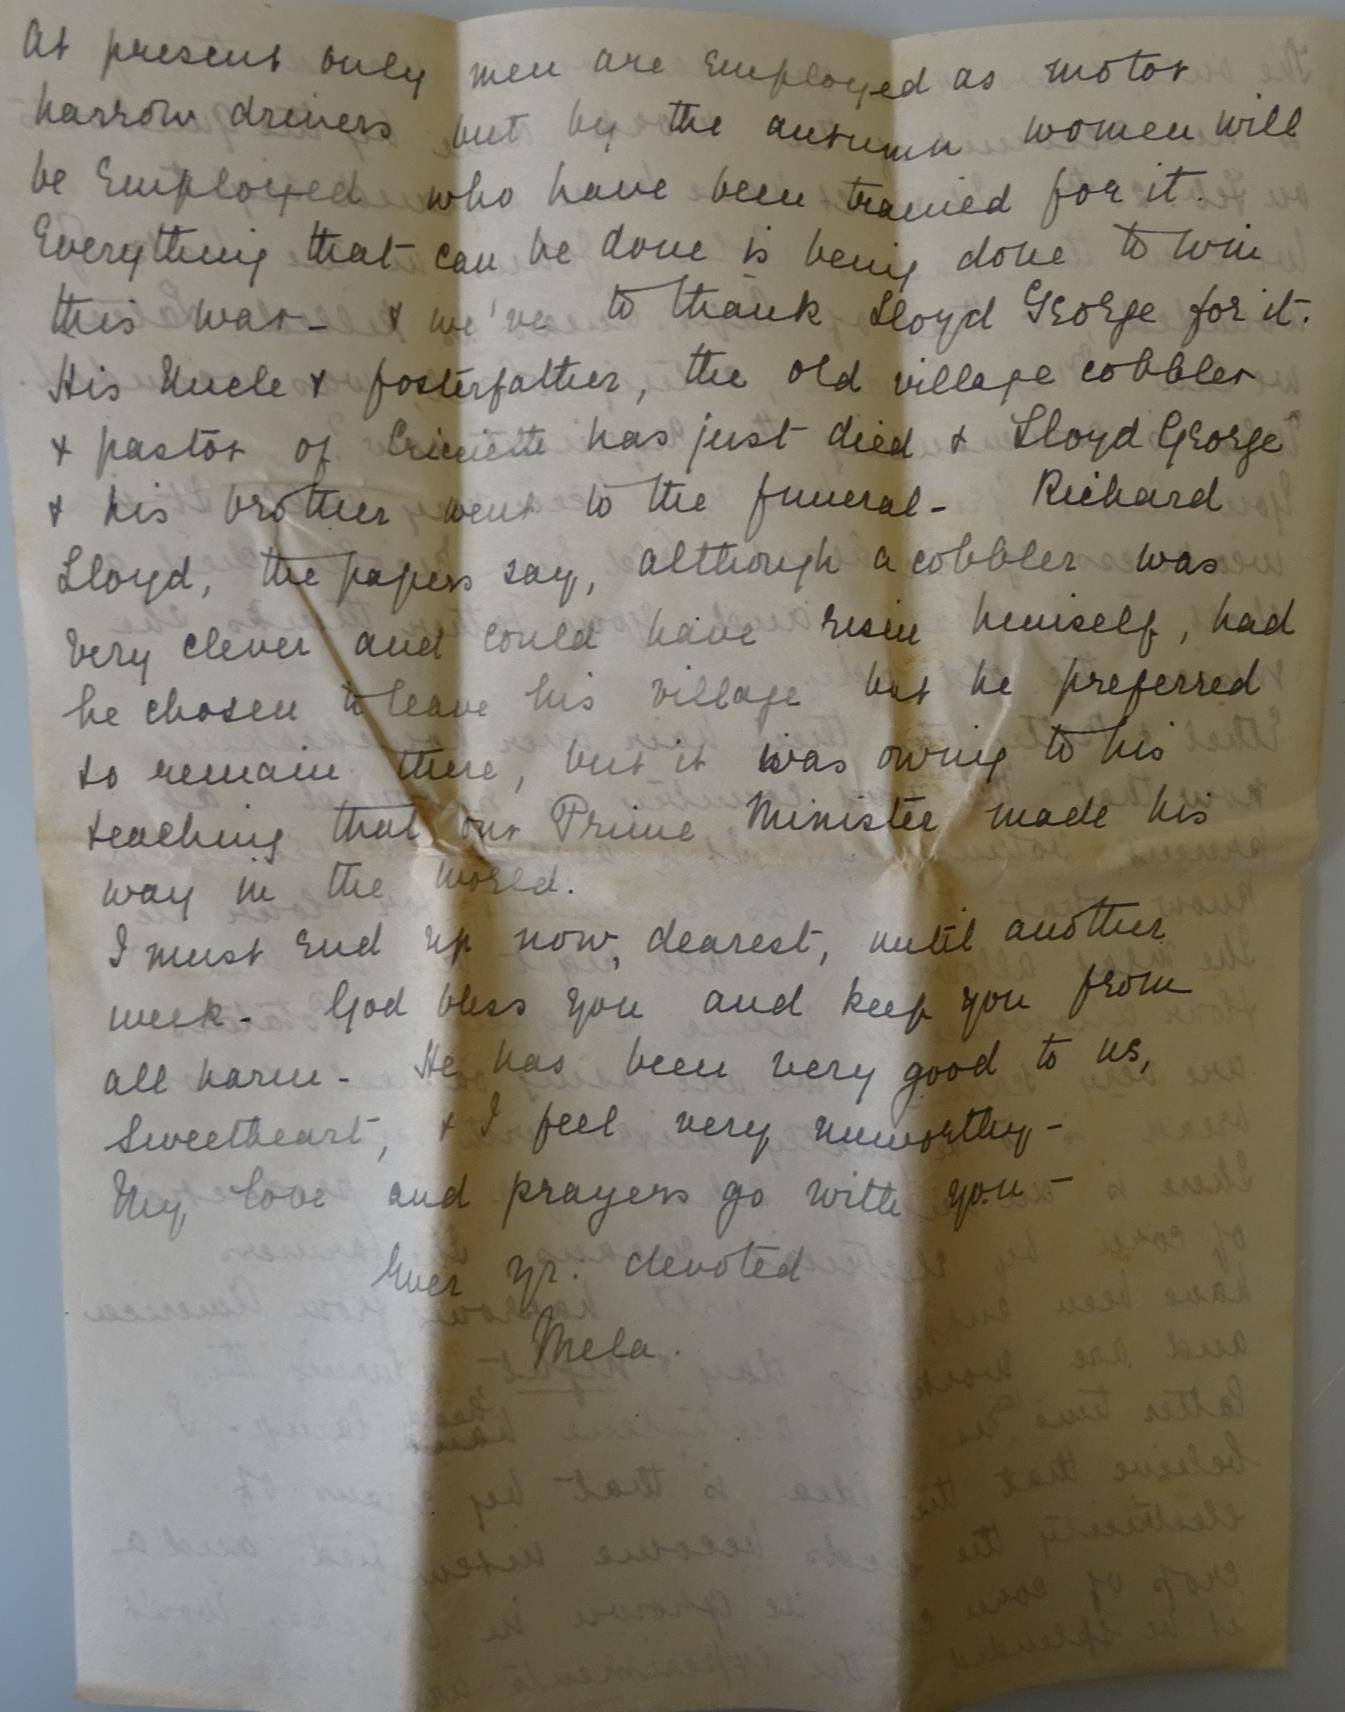 At present only men are employed as motor
harrow drivers but by the autumn women will
be employed who have been trained for it.
Everything that can be done is being done to win
this war - & we've to thank Lloyd George for it.
His Uncle & fosterfather, the old village cobbler
& pastor of Criccieth has just died & Lloyd George
& his brother went to the funeral - Richard
Lloyd, the papers say, although a cobbler was
very clever and could have risen himself, had
he chosen to leave his village but he preferred
to remain there, but it was owing to his
teaching that our Prime Minister made his
way in the world.
I must end up now, dearest, until another
week - God bless you and keep you from
all harm - He has been very good to us,
Sweetheart, & I feel very unworthy -
My love and prayers go with you -
Ever yr. devoted
Mela.